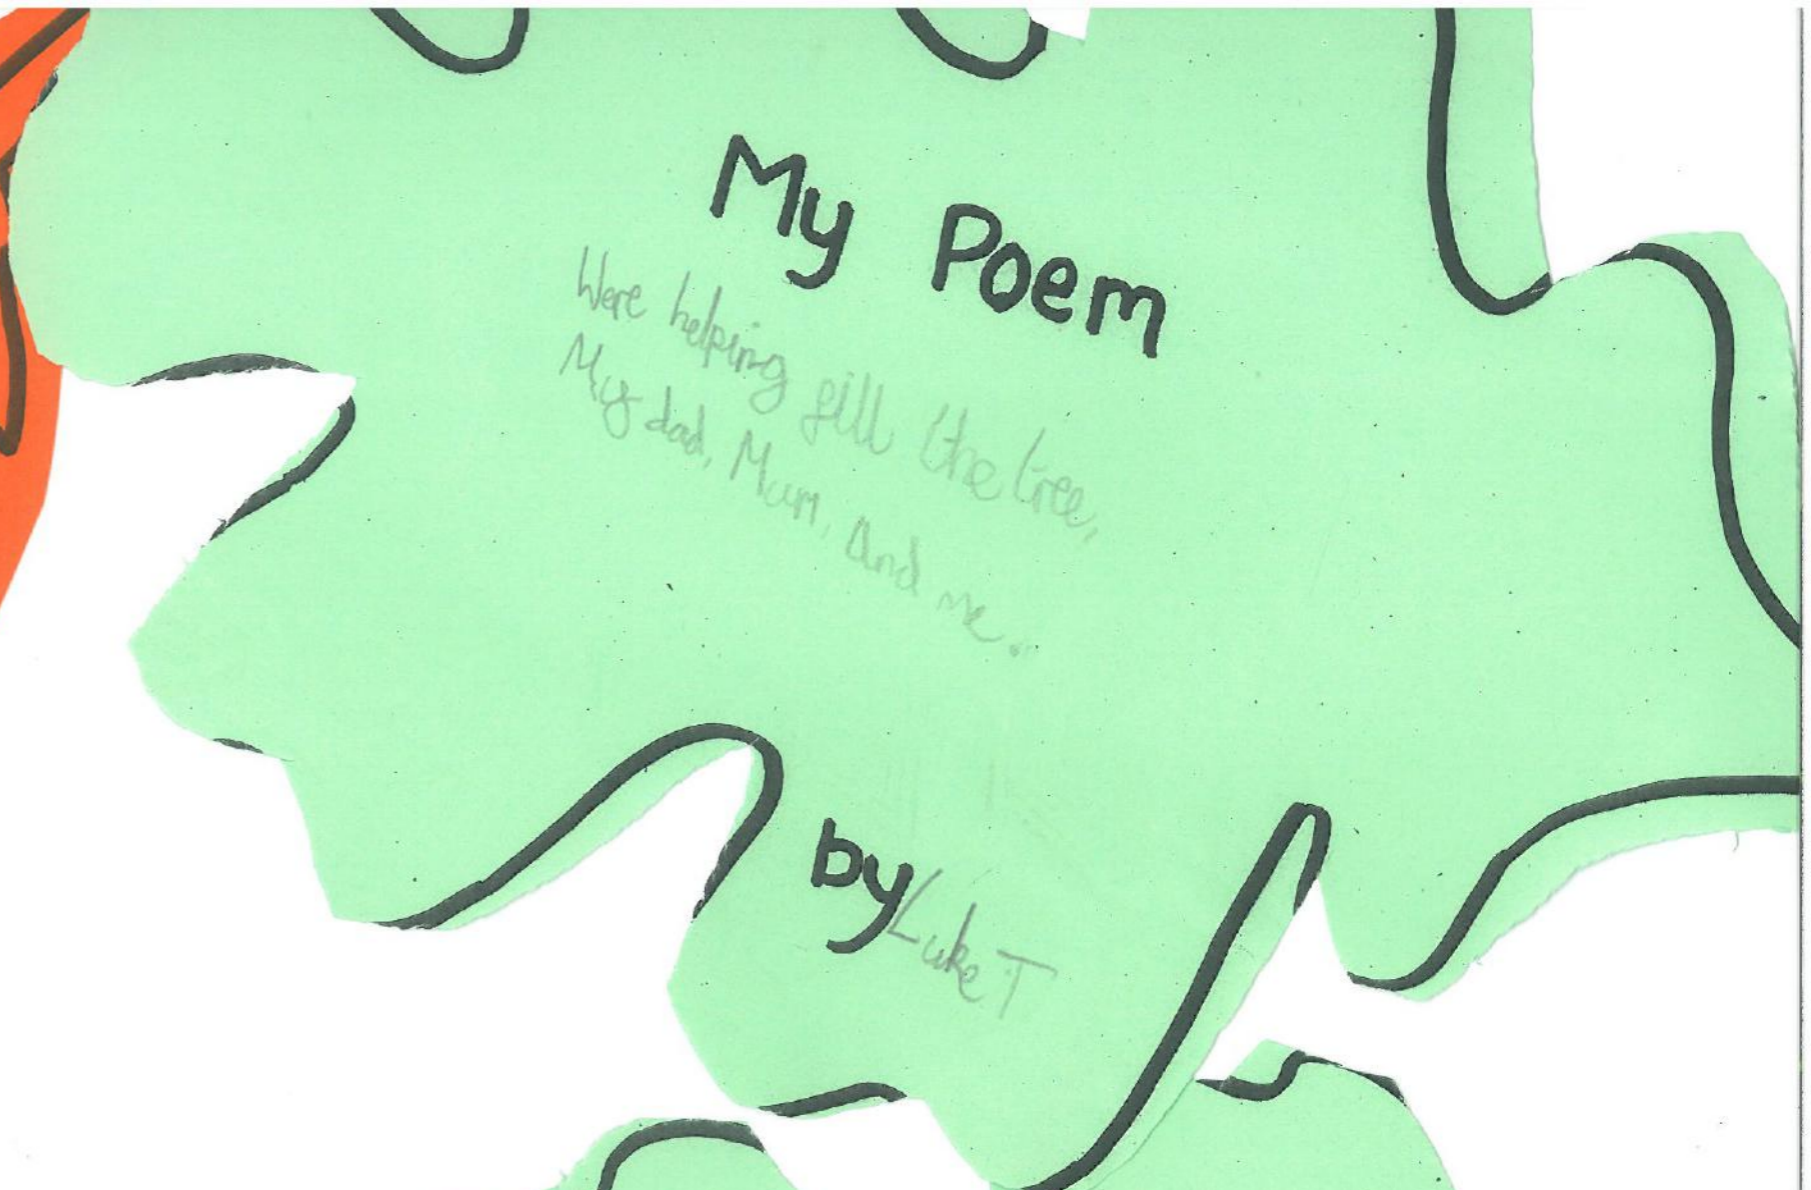 My Poem
Were helping fill the tree,
My dad, Mum, and me.
by Luke T